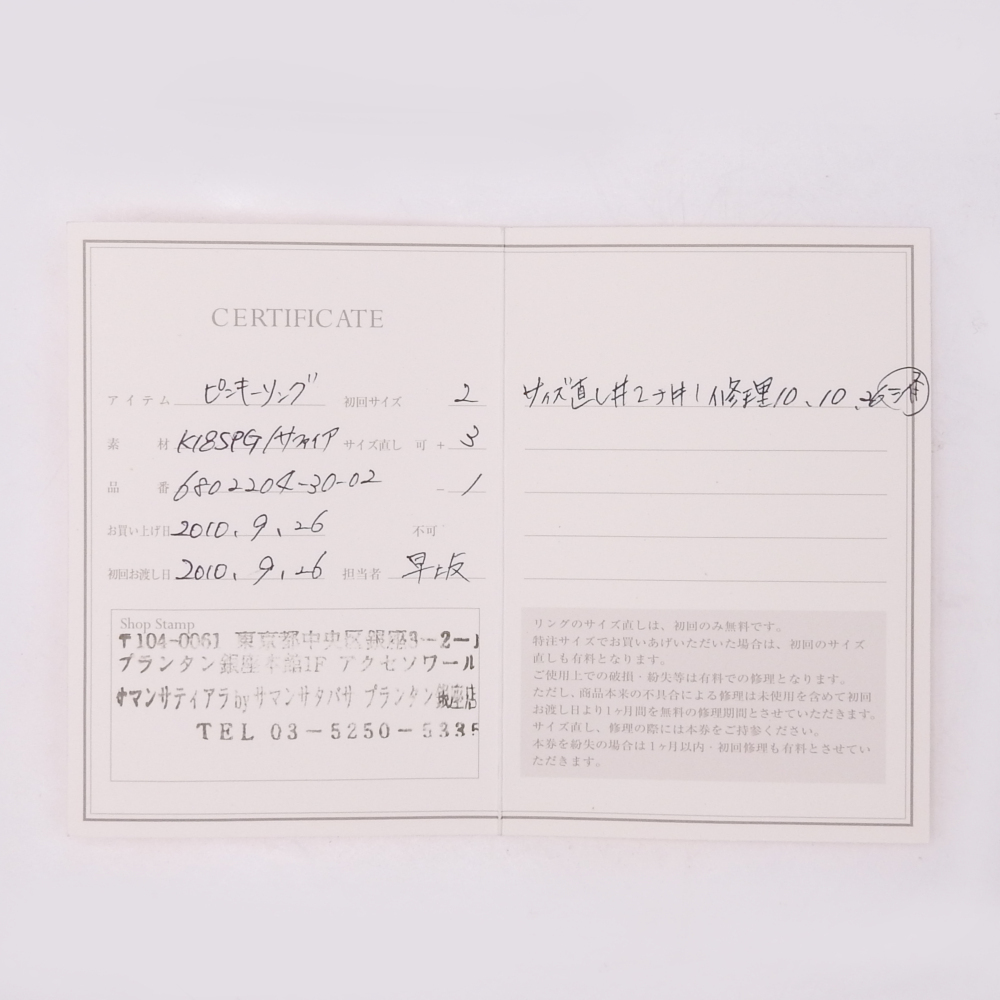 CERTIFICATE
アイテム ピンキーリング 初回サイズ 2
素材 K18SPG/サファイア サイズ直し 可 + 3
品番 6802204-30-02 - 1
お買い上げ日 2010. 9. 26 不可
初回お渡し日 2010. 9. 26 担当者 早坂
Shop Stamp
〒104-0061 東京都中央区銀座3-2-1
プランタン銀座本館1F アクセソワール
サマンサティアラbyサマンサタバサ プランタン銀座店
TEL 03-5250-5335
サイズ直し#2→#1修理10.10.26
リングのサイズ直しは、初回のみ無料です。
特注サイズでお買いあげいただいた場合は、初回のサイズ
直しも有料となります。
ご使用上での破損・紛失等は有料での修理となります。
ただし、商品本来の不具合による修理は未使用を含めて初回
お渡し日より1ヶ月間を無料の修理期間とさせていただきます。
サイズ直し、修理の際には本券をご持参ください。
本券を紛失の場合は1ヶ月以内・初回修理も有料とさせてい
ただきます。